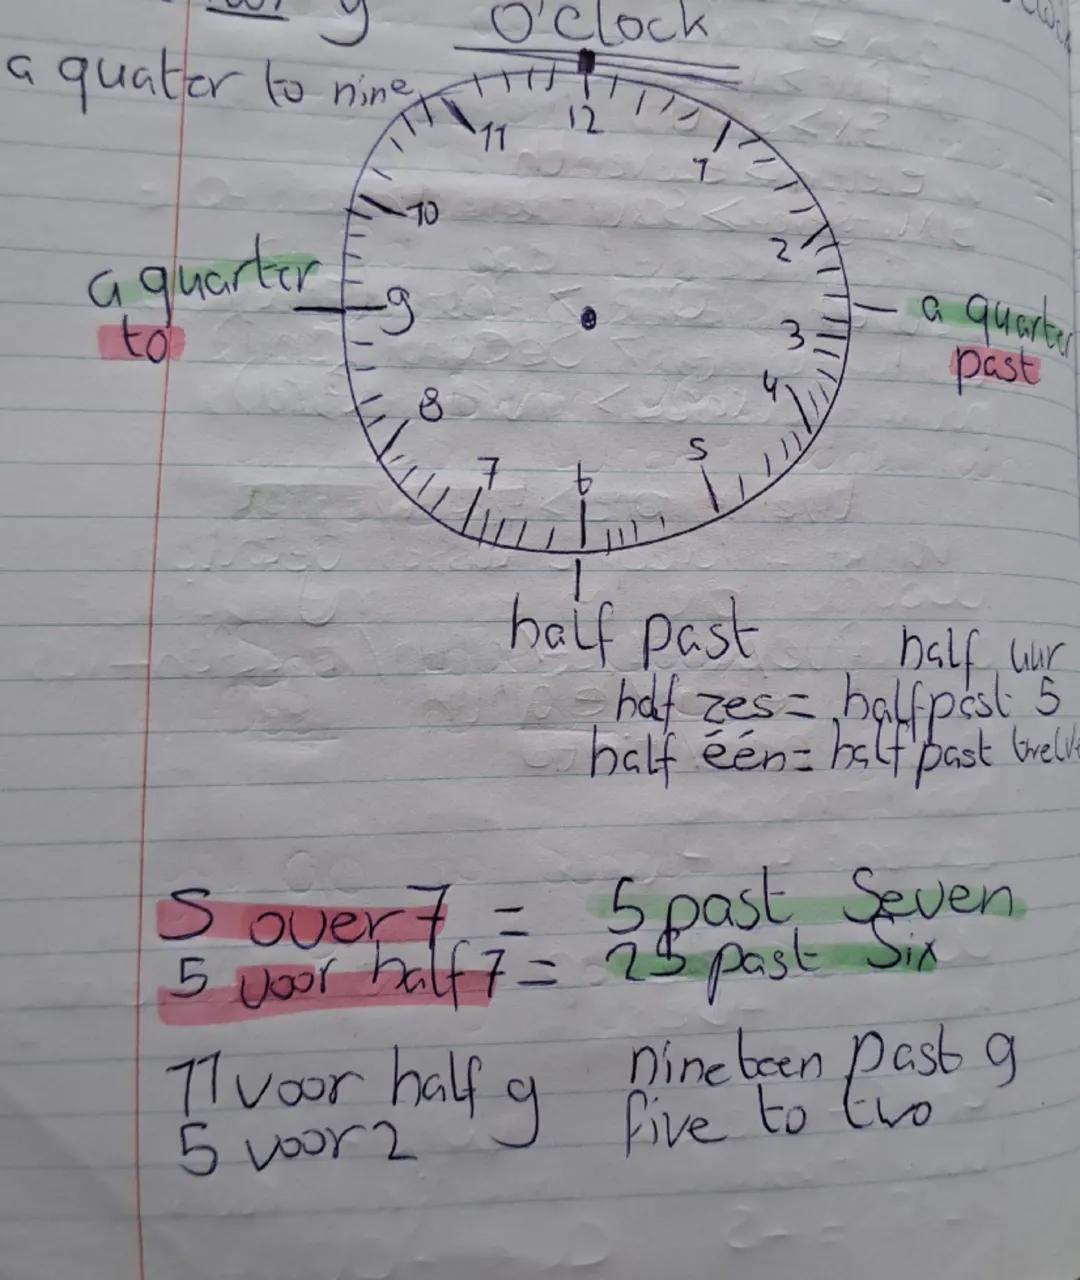 O'Clock
a quater to nine
12
11
1
10
2
a quarter
to
9
3
a quarter
past
8
4
7
6
5
half past
half uur
half zes = half past 5
half één = half past twelve
5 over 7 = 5 past Seven
5 voor half 7 = 25 past Six
11 voor half 9 nineteen past 9
5 voor 2 five to two